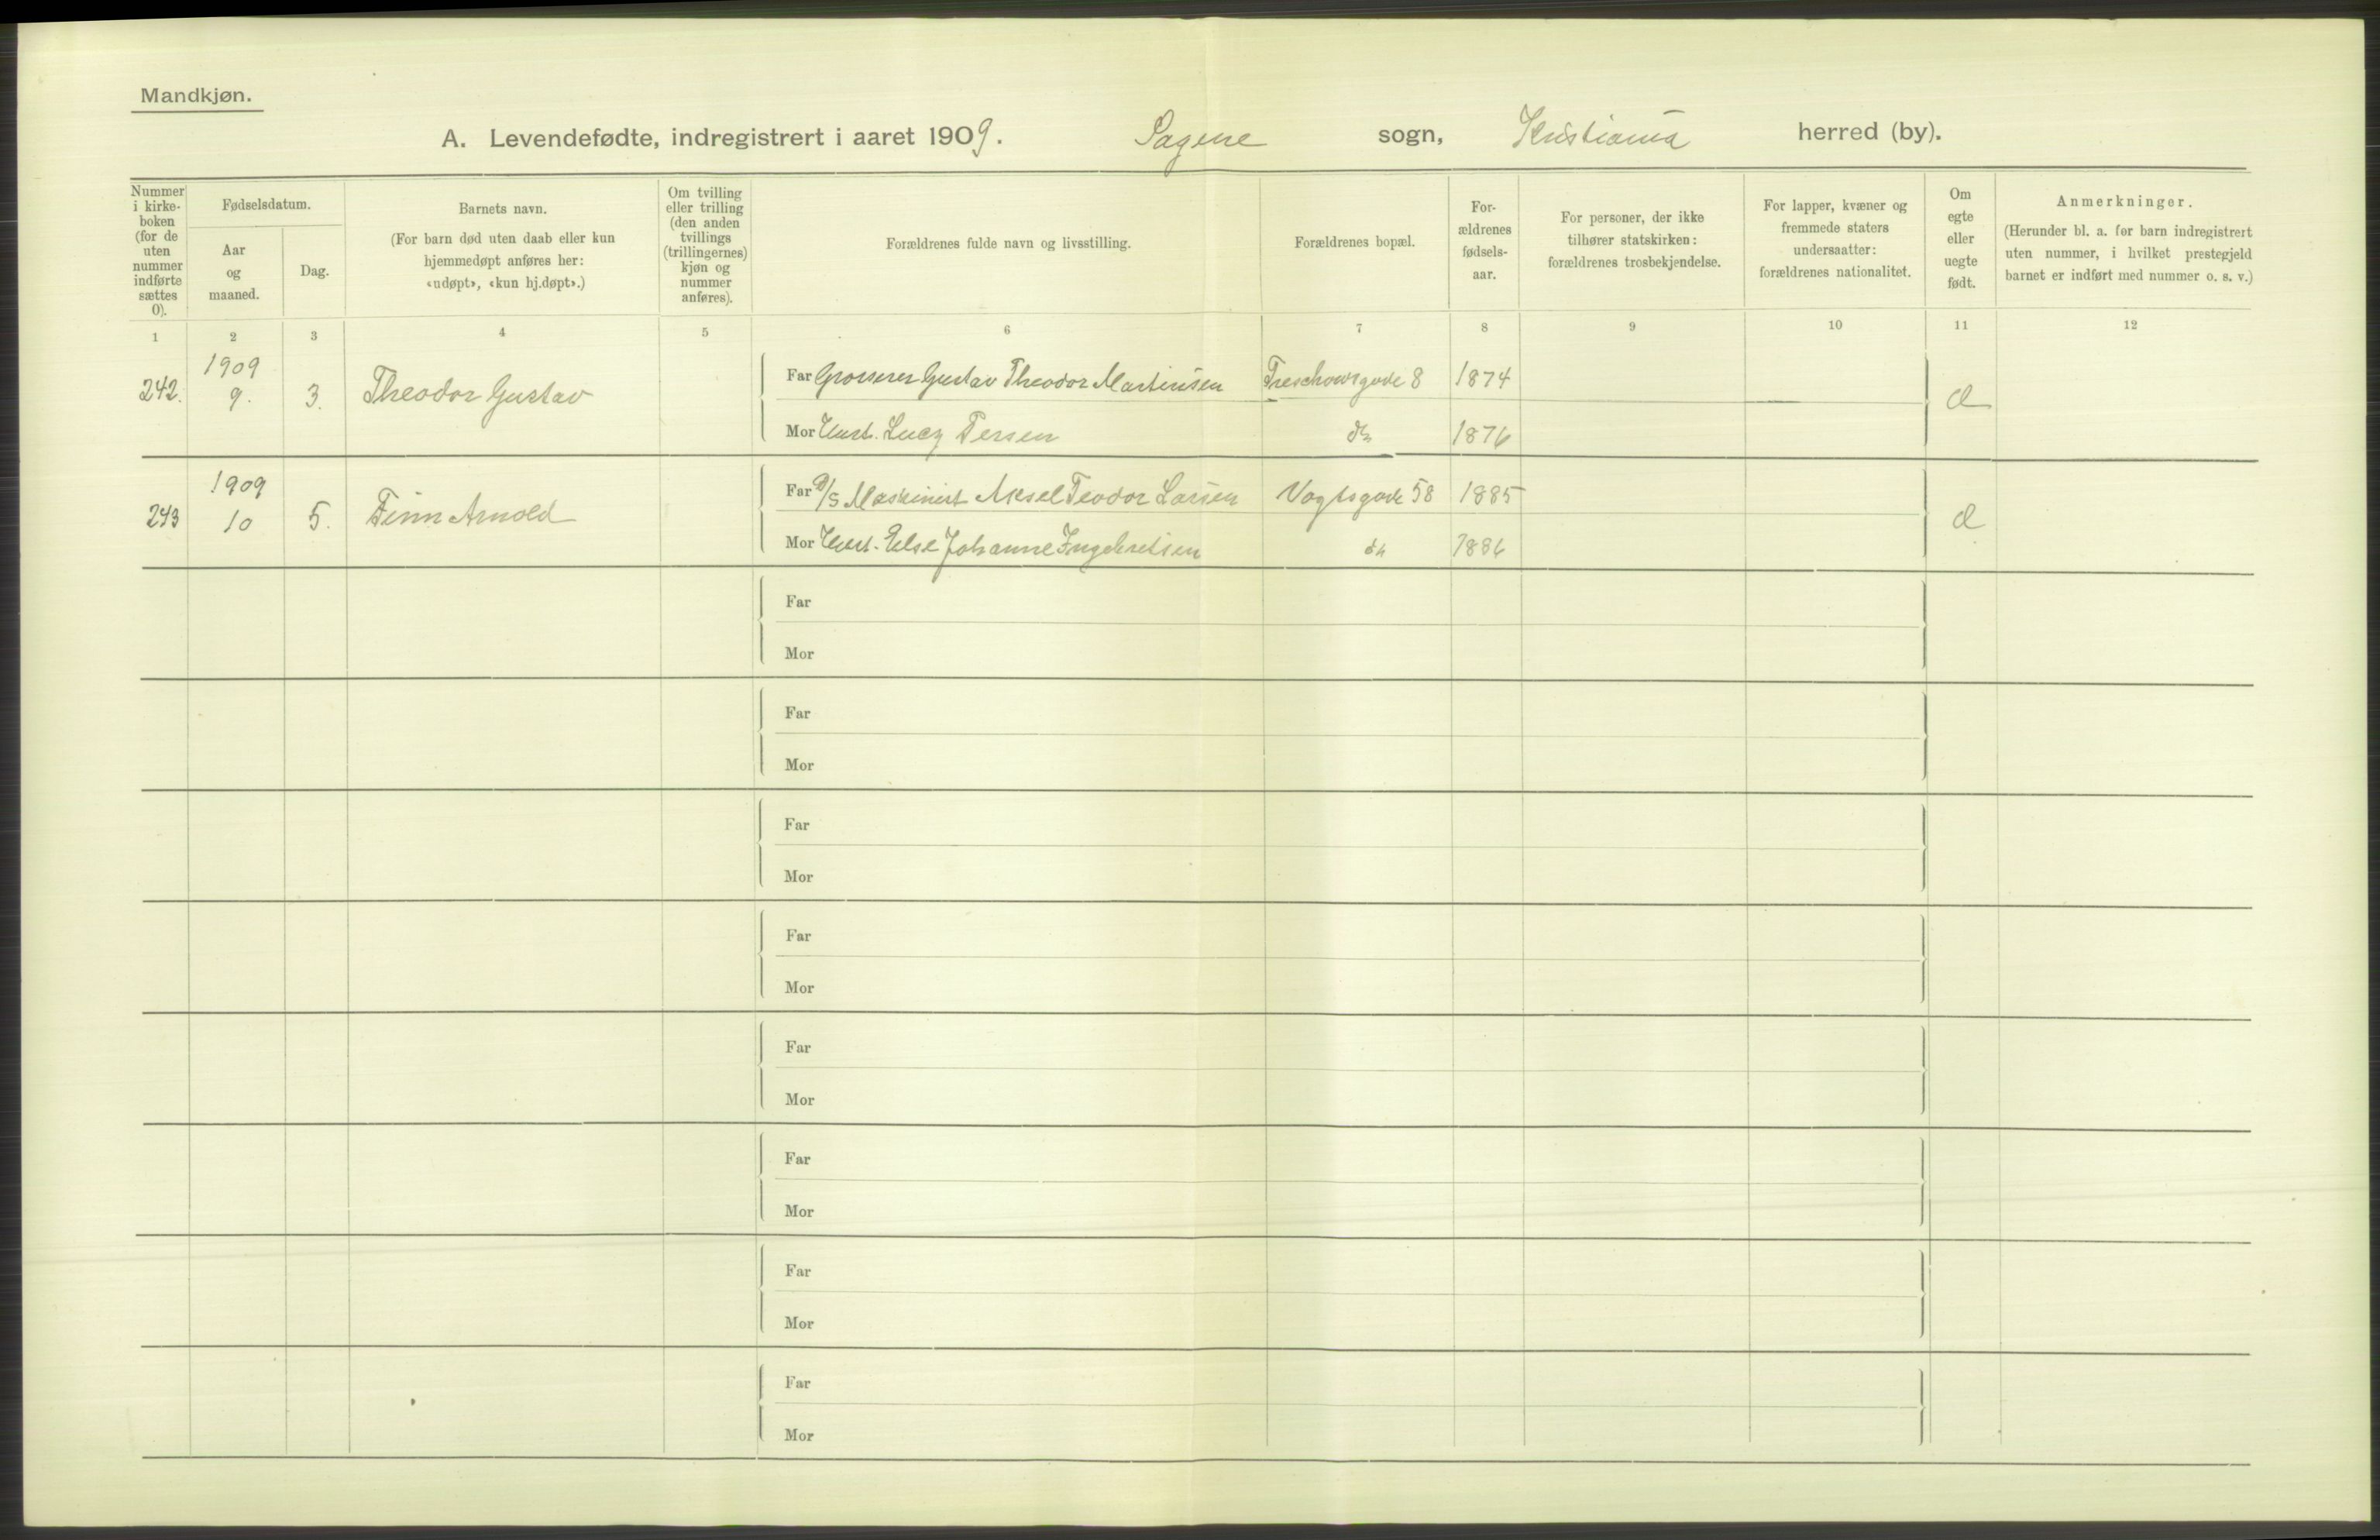 Mandkjøn.
A. Levendefødte, indregistrert i aaret 1909. Sagene sogn, Kristiania herred (by).
Nummer i kirke-boken (for de uten nummer indførte sættes 0).
Fødselsdatum.
Aar og maaned.
Dag.
Barnets navn.
(For barn død uten daab eller kun hjemmedøpt anføres her: «udøpt», «kun hj.døpt».)
Om tvilling eller trilling (den anden tvillings (trillingernes) kjøn og nummer anføres).
Forældrenes fulde navn og livsstilling.
Forældrenes bopæl.
For-ældrenes fødsels-aar.
For personer, der ikke tilhører statskirken: forældrenes trosbekjendelse.
For lapper, kvæner og fremmede staters undersaatter: forældrenes nationalitet.
Om egte eller uegte født.
Anmerkninger.
(Herunder bl. a. for barn indregistrert uten nummer, i hvilket prestegjeld barnet er indført med nummer o. s. v.)
1 2 3 4 5 6 7 8 9 10 11 12
1909
242. 9. 3. Theodor Gustav Far Grosserer Gustav Theodor Martinsen Treschowsgade 8 1874
Mor Hust. Lucy Persen do 1876
1909
243 10 5. Finn Arnold Far Maskinist Aksel Teodor Larsen Vogtsgade 58 1885
Mor Hust. Else Johanne Ingebretsen do 1886
Far
Mor
Far
Mor
Far
Mor
Far
Mor
Far
Mor
Far
Mor
Far
Mor
Far
Mor